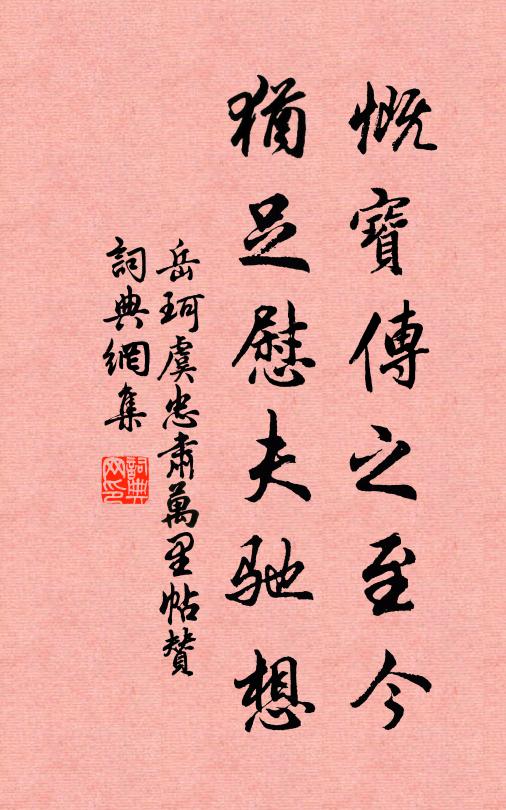 慨寶傳之至今
猶足慰夫馳想
岳珂虞忠肅萬里帖贊
詞典網集
詞典网印